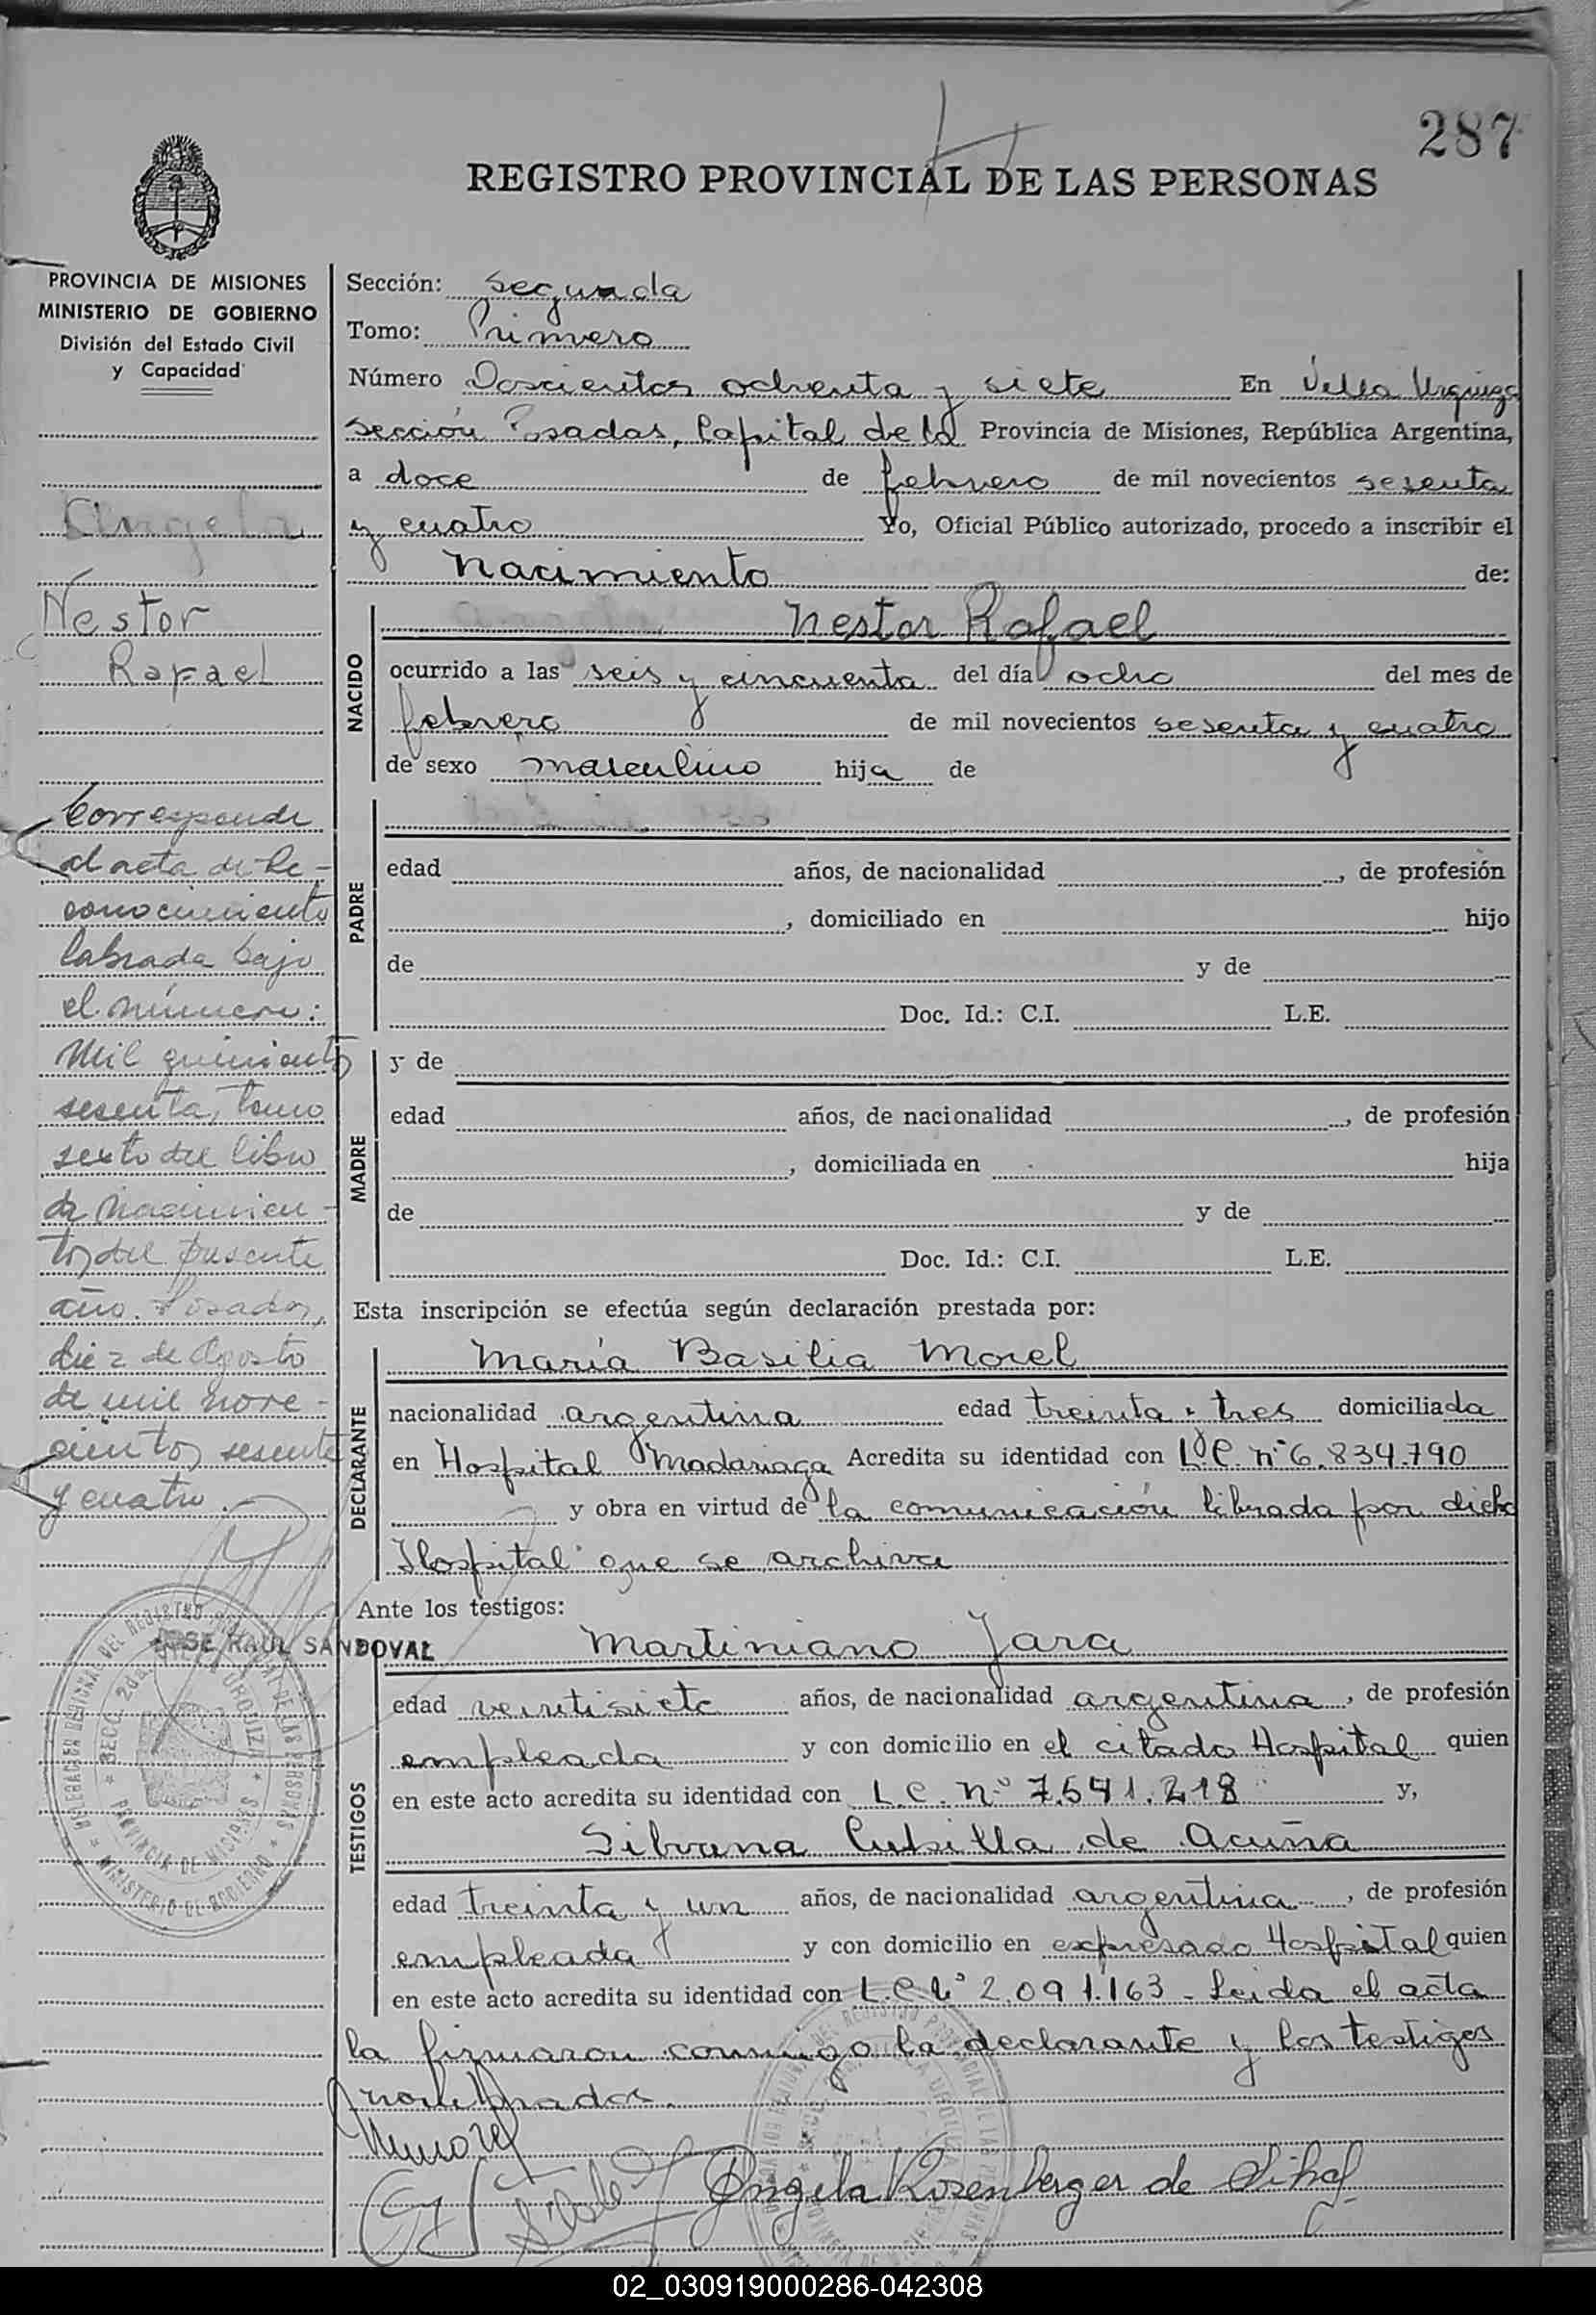 287
REGISTRO PROVINCIAL DE LAS PERSONAS
PROVINCIA DE MISIONES
MINISTERIO DE GOBIERNO
División del Estado Civil
y Capacidad
Angela
Nestor
Rafael
Corresponde
al acta de Re-
conocimiento
labrada bajo
el número:
Mil quinientos
sesenta, tomo
sexto del libro
de Nacimien-
tos del presente
año. Posadas,
diez de Agosto
de mil nove-
cientos sesenta
y cuatro.-
JOSE RAUL SANDOVAL
DELEGACION REGIONAL DEL REGISTRO PROVINCIAL DE LAS PERSONAS
SECC. 2da. VILLA URQUIZA
PROVINCIA DE MISIONES
MINISTERIO DE GOBIERNO
Sección: Segunda
Tomo: Primero
Número Doscientos ochenta y siete En Villa Urquiza
Sección Posadas, Capital de la Provincia de Misiones, República Argentina,
a doce de febrero de mil novecientos sesenta
y cuatro Yo, Oficial Público autorizado, procedo a inscribir el
Nacimiento de:
NACIDO
Nestor Rafael
ocurrido a las seis y cincuenta del día ocho del mes de
febrero de mil novecientos sesenta y cuatro
de sexo masculino hija de
PADRE
edad años, de nacionalidad , de profesión
, domiciliado en hijo
de y de
Doc. Id.: C.I. L.E.
MADRE
y de
edad años, de nacionalidad , de profesión
, domiciliada en hija
de y de
Doc. Id.: C.I. L.E.
Esta inscripción se efectúa según declaración prestada por:
DECLARANTE
María Basilia Morel
nacionalidad argentina edad treinta y tres domiciliada
en Hospital Madariaga Acredita su identidad con L.C. nº 6.834.790
y obra en virtud de la comunicación librada por dicho
Hospital que se archiva
Ante los testigos:
TESTIGOS
Martiniano Jara
edad veintisiete años, de nacionalidad argentina, de profesión
empleada y con domicilio en el citado Hospital quien
en este acto acredita su identidad con L.C. nº 7.541.218 y,
Silvana Cubilla de Acuña
edad treinta y un años, de nacionalidad argentina, de profesión
empleada y con domicilio en expresado Hospital quien
en este acto acredita su identidad con L.C. Nº 2.091.163 - Leida el acta
la firmaron conmigo la declarante y los testigos
nombrados.
Angela Rosenberger de
02_030919000286-042308